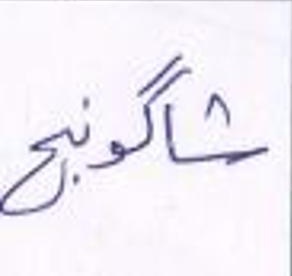 شاگونیج